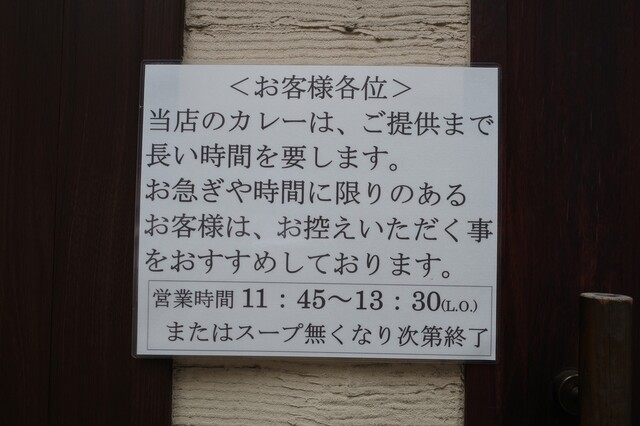 ＜お客様各位＞
当店のカレーは、ご提供まで
長い時間を要します。
お急ぎや時間に限りのある
お客様は、お控えいただく事
をおすすめしております。
営業時間 11：45〜13：30(L.O.)
またはスープ無くなり次第終了